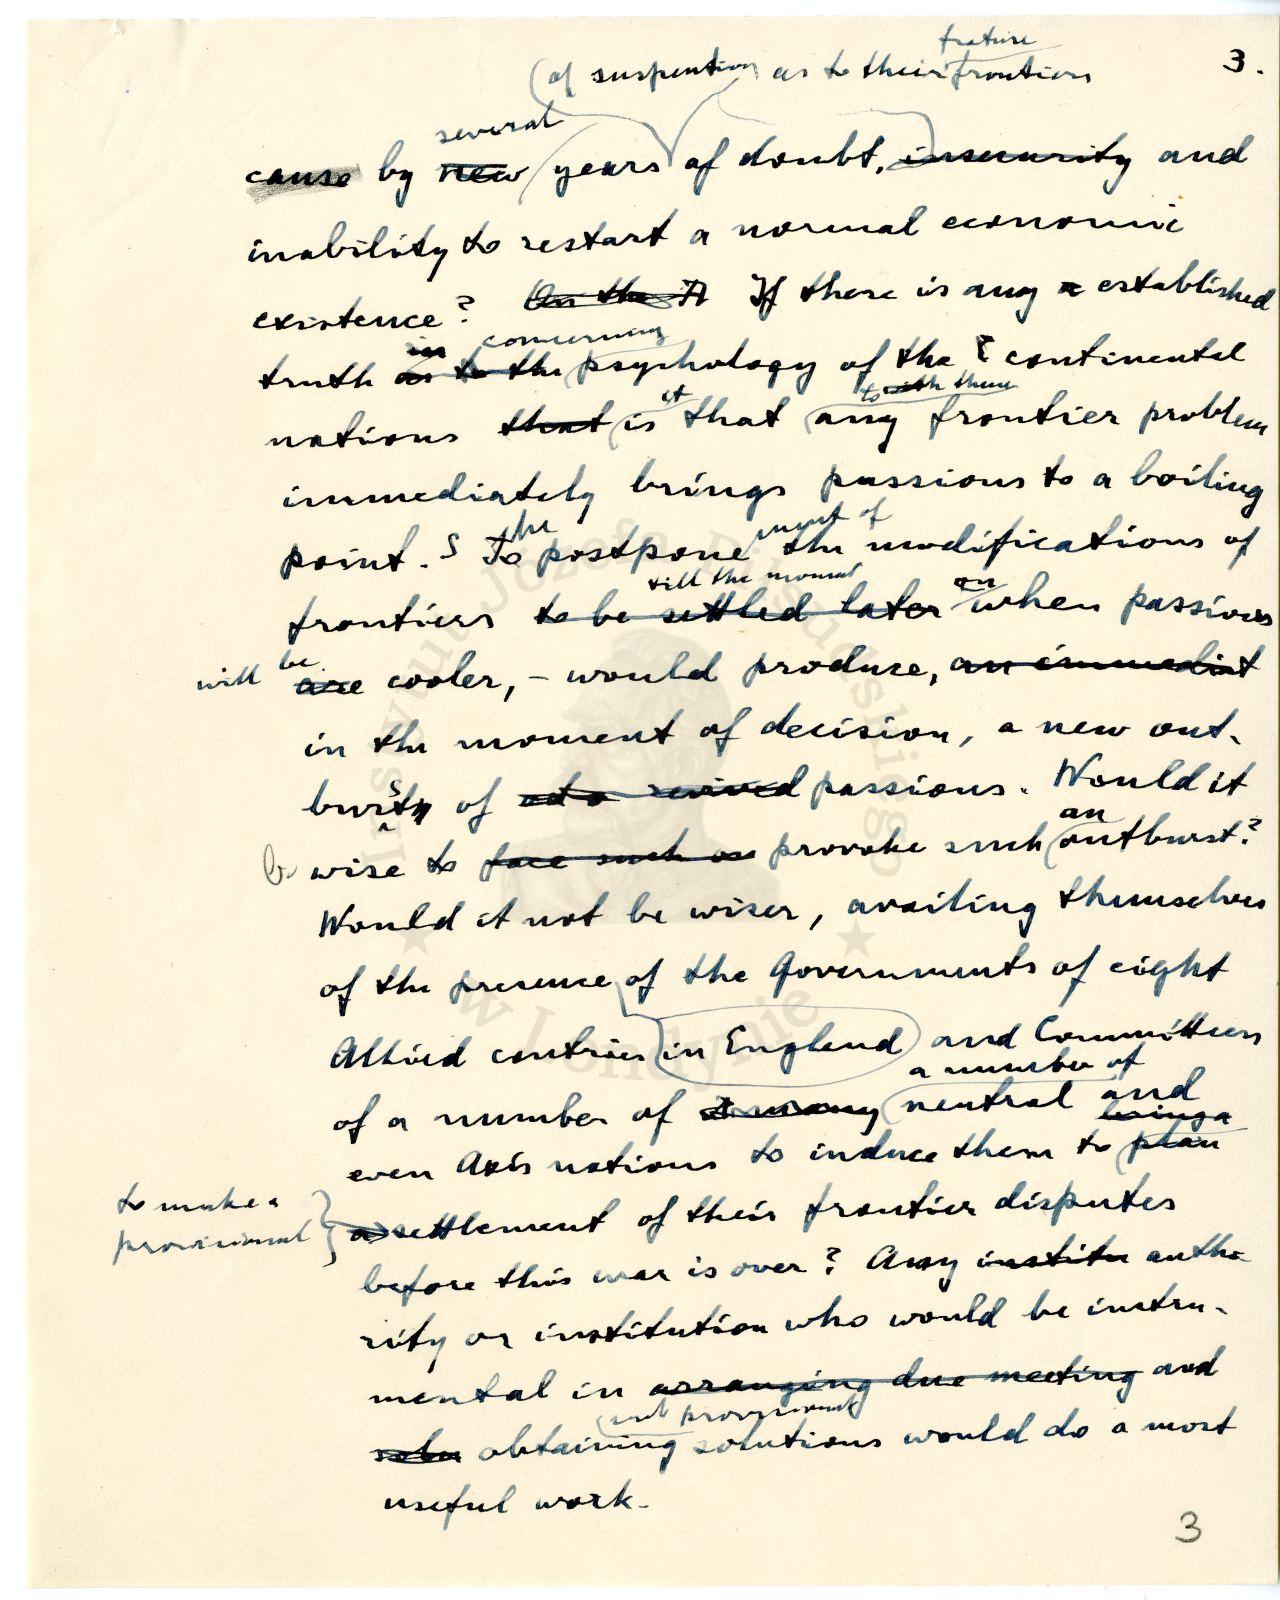 3.
future
(of suspention as to their frontiers
several
cause by new years of doubt, insecurity and
inability to restart a normal economic
existence? On the If there is any a established
in concerning
truth as to the psychology of the continental
it to with them
nations that is that any frontier problem
immediately brings passions to a boiling
The ment of
point. To postpone the modifications of
till the moment
frontiers to be settled later when passions
will be
are cooler, - would produce, an immediat
in the moment of decision, a new out-
burst of passions. Would it
an
b wise to face such as provoke such outburst?
Would it not be wiser, availing themselves
of the presence of the Governments of eight
Allied contries in England and Committees
a number of
of a number of many neutral and
even Axis nations to induce them to plan
to make a
provisional
a settlement of their frontier disputes
before this war is over? Any institu autho-
rity or institution who would be instru-
mental in arranging due meeting and
such provisional
solu obtaining solutions would do a most
useful work.
3
Instytut Józefa Piłsudskiego
w Londynie